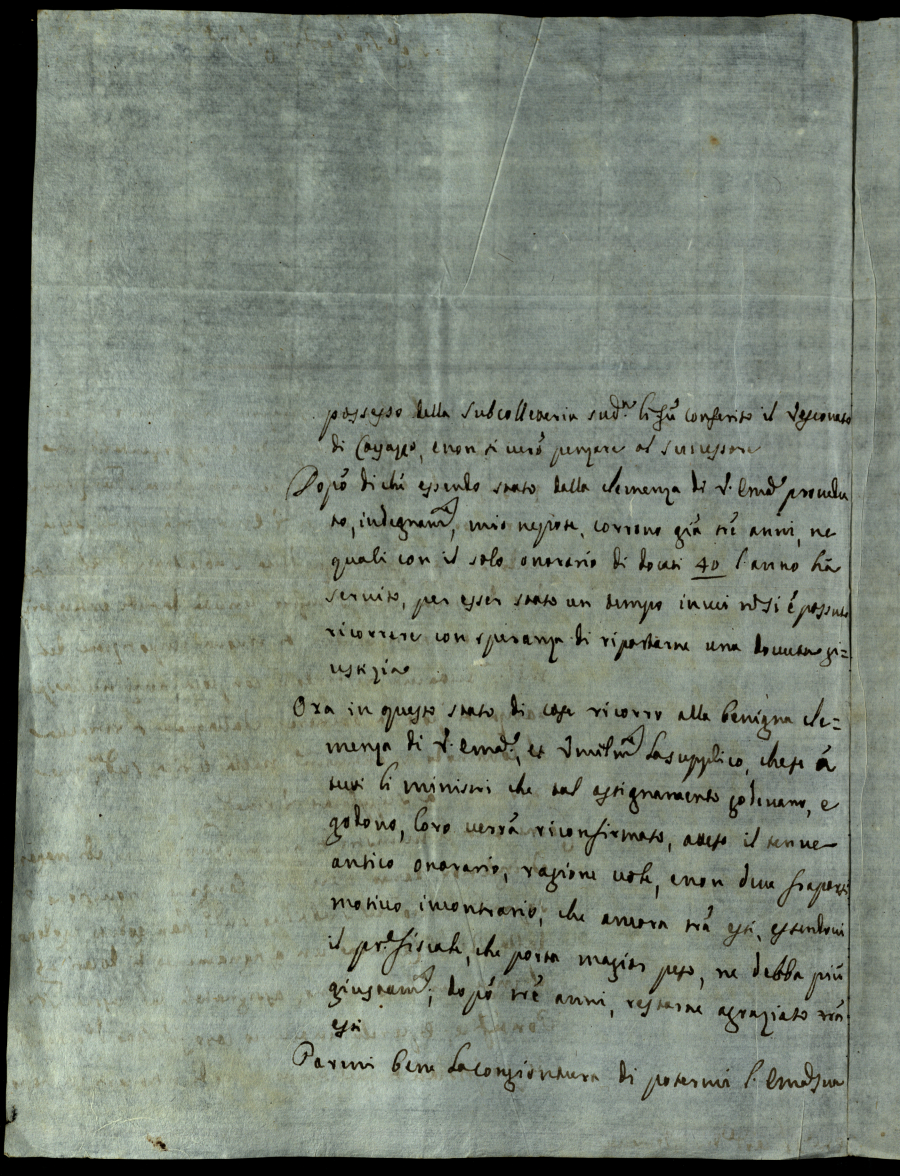 possesso della Subcolletteria sud.ª li fù conferito il Vescovato
di Cajazzo, e non si verò penzare al successore
Dopò di chè essendo stato dalla clemenza di V. Em.ª provedu
to, indegnam.te, mio nepote, corrono già trè anni, ne
quali con il solo onorario di docati 40 l'anno hà
servito, per esser stato un tempo in cui nō si è possuto
ricorrere con speranza di riportarne una dovuta gi=
ustizia
Ora in questo stato di cose ricorro alla benigna cle=
menza di V. Em.ª, et Vmilm.te la supplico, che se à
tutti li ministri che tal assignamento godevano, e
godono, loro verrà riconfirmato, atteso il tenue
antico onorario, ragione vole, e non deve fraporsi
motivo incontrario, che ancora trà essi, essendovi
il pr. fiscale, che porta magior peso, ne debba più
giustam.te, dopò trè anni, restarne agraziato trà
essi
Parmi bene la congiontura di potermi l'Em.ª Sua